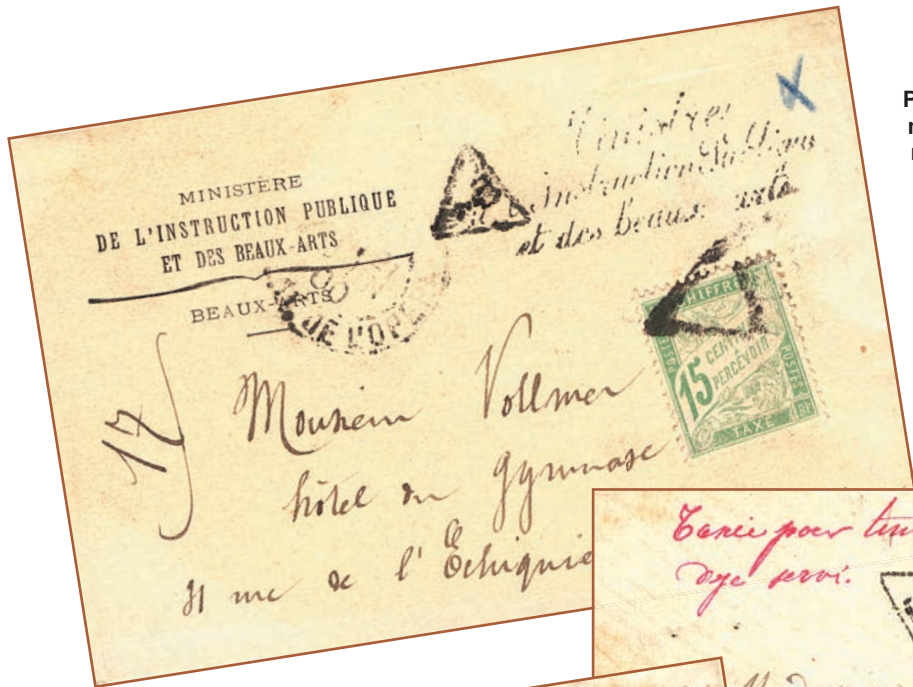 MINISTÈRE
DE L'INSTRUCTION PUBLIQUE
ET DES BEAUX-ARTS
BEAUX-ARTS
Ministre
instruction Publique
et des beaux arts
DE L'OPE
CHIFFRE
POSTES
15 CENTIMES
À PERCEVOIR
TAXE
RF
17
Monsieur Vollmer
hôtel du gymnase
31 rue de l'Echiquie
Taxée pour tim
dejc servi.
P